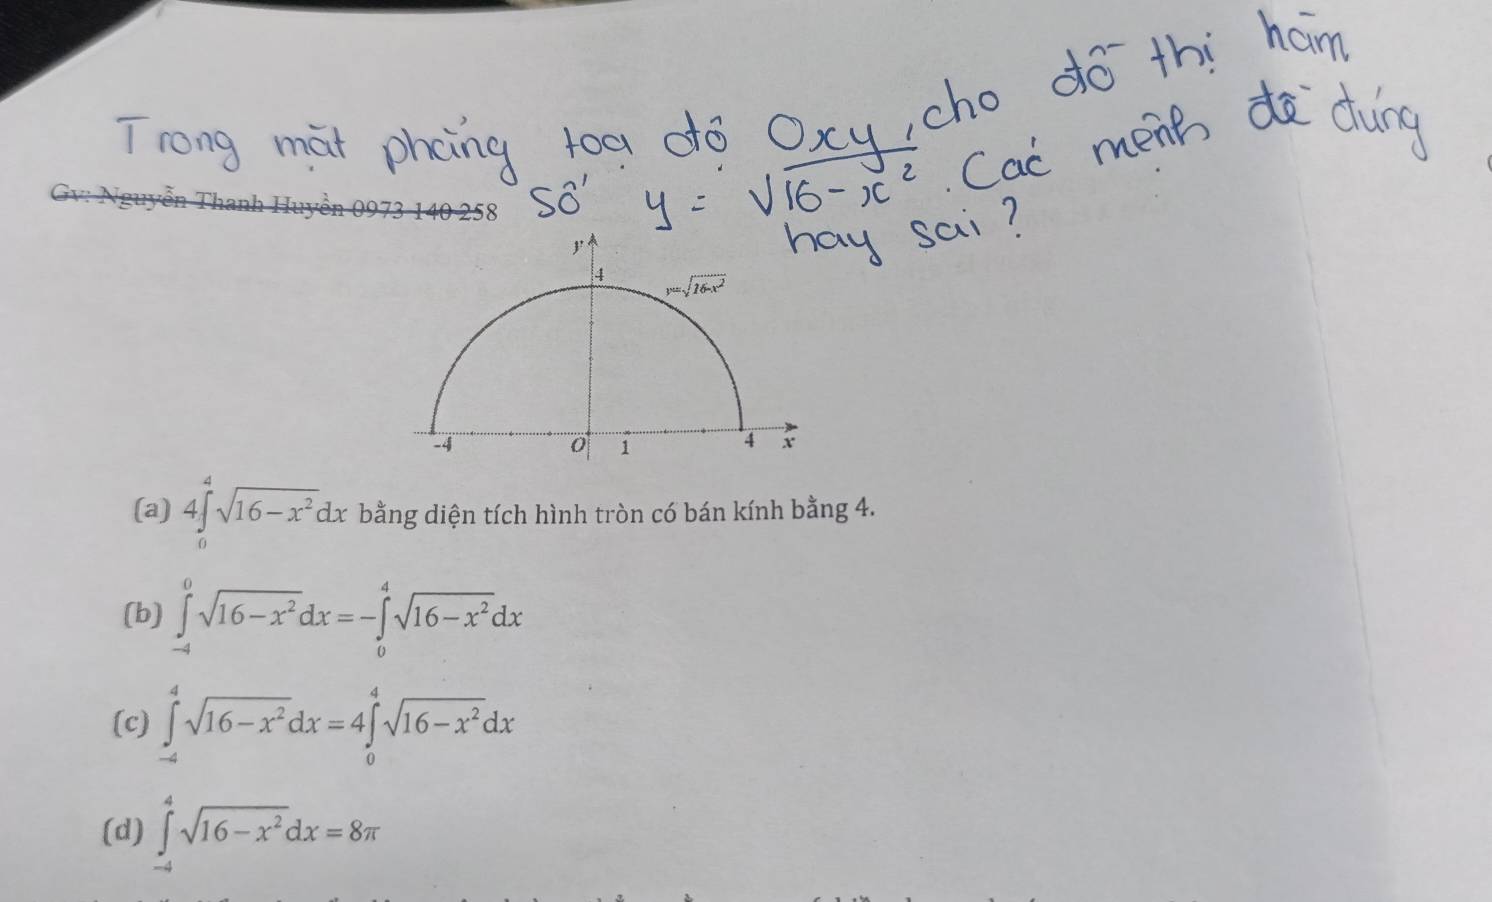 Trong mặt phẳng toạ độ Oxy, cho đồ thị hàm
số y = √16-x². Các mệnh đề đúng
hay sai?
Gv: Nguyễn Thanh Huyền 0973 140 258
y
4
y=√16-x²
-4 O 1 4 x
(a) 4∫₀⁴√16−x²dx bằng diện tích hình tròn có bán kính bằng 4.
(b) ∫₋₄⁰√16−x²dx = −∫₀⁴√16−x²dx
(c) ∫₋₄⁴√16−x²dx = 4∫₀⁴√16−x²dx
(d) ∫₋₄⁴√16−x²dx = 8π